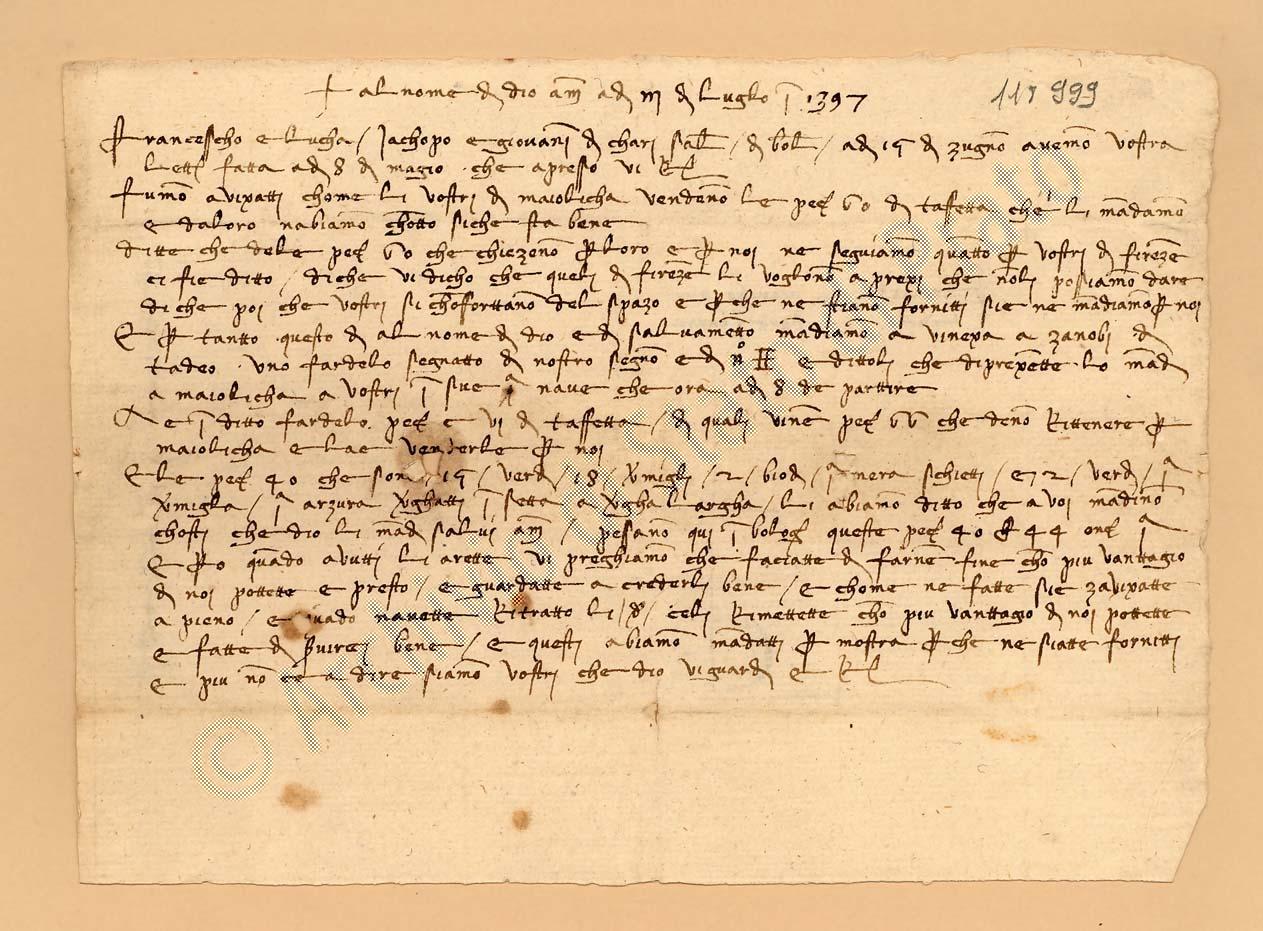 + al nome de dio am ad iii de luglo 1397
117 999
Francescho e lucha / Jachopo e giovani de chari sal / de bol / ad 15 de zugno avemo vostra
letti fatta ad 8 de magio · che apresso vi
fumo avixatti chome li vostri de maiolicha vendeno le peç 60 de taffetta che li mandamo
e daloro nabiamo chotto siche sta bene
ditte che dele peç 60 che chiezeno p loro e p noi ne seguiamo quanto p vostri de firenze
ci fie ditto / diche vi dicho che queli de firenze li voglono a prexi che noli possiamo dare
di che poi che vostri si choforttano del spazo e p che ne stiano fornitti sie ne mandiamo p noi
E p tantto questo de al nome de dio e de salvametto mandiamo a vinexa a zanobi de
tadeo · uno fardelo segnatto de nostro segno e de no II e dittoli che diprexente lo mand
a maiolicha a vostri nave che ora ad 8 de parttire
e ditto fardelo peç c vi de taffetta / de quali vine peç 66 che deno Rittenere p
maiolicha e lae venderle p noi
E le peç 40 che sono 15 / verd / 18 / vmigli / 2 / biod / nera schietti / e 2 / verd /
vmigla / arzura vghatti setta a vgha largha / li abiamo ditto che a voi madino
chosti che dio li mad salvi am / pesano qui bolog queste peç 40 44 onç
E po quado avutti li arette vi preghiamo che faciatte de farne fine cho piu vanttagio
de noi pottete e presto / e guardatte a crederli bene / e chome ne fatte sie zavixatte
a pieno / e quado navette Ritratto li / / celi Rimettette cho piu vanttagio de noi pottete
e fatte de svirci bene / e questi abiamo madatti p mostra p che ne siatte fornitti
e piu no ce a dire siamo vostri che dio vi guard e
© Archivio di Stato di Prato